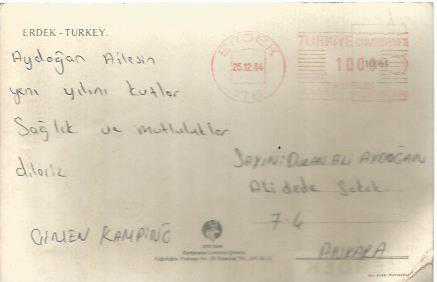 ERDEK - TURKEY.
Aydoğan Ailesin
yeni yılını kutlar
Sağlık ve mutluluklar
dileriz
ÇİMEN KAMPİNG
ERDEK
25.12.84
TÜRKİYE CUMHURİYETİ
SAYIN: DURAN ALİ AYDOĞAN
Ali dede Sokak
7-4
ANKARA